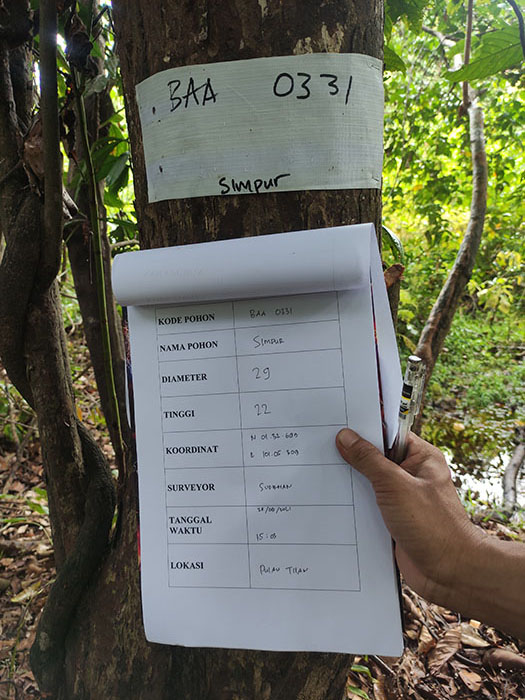 BAA 0331
Simpur
KODE POHON BAA 0331
NAMA POHON SIMPUR
DIAMETER 29
TINGGI 22
KOORDINAT N 01.32 600
E 101.05 509
SURVEYOR
TANGGAL
WAKTU 15:03
LOKASI PULAU TILAN